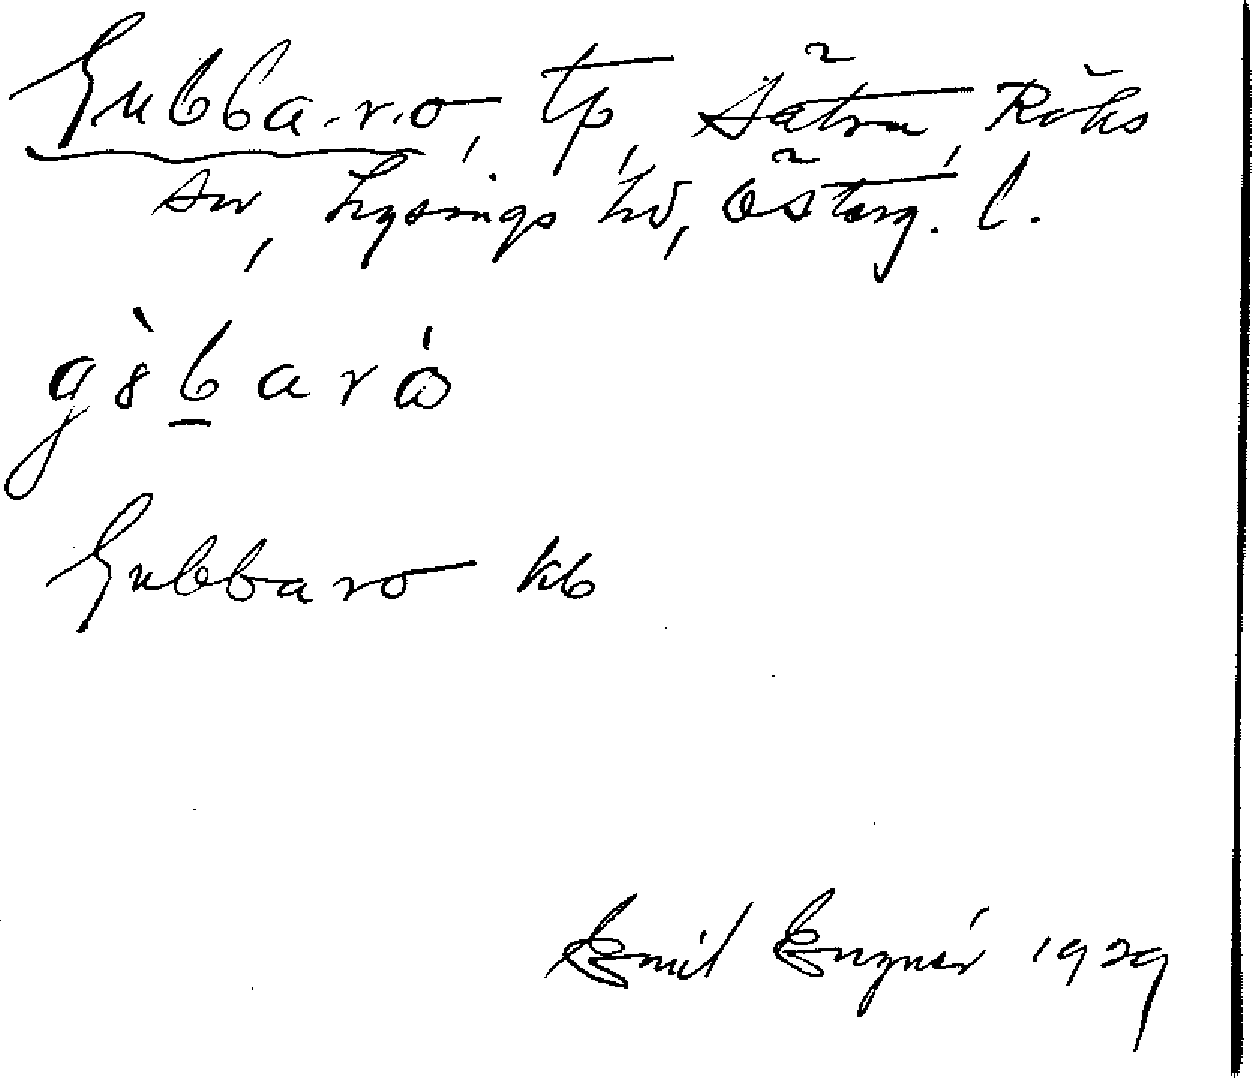 Gubba-ro, tp, Sätra, Röks
sn, Lysings hd, Österg. l.
Gubbaro kb
Emil Enznér 1929